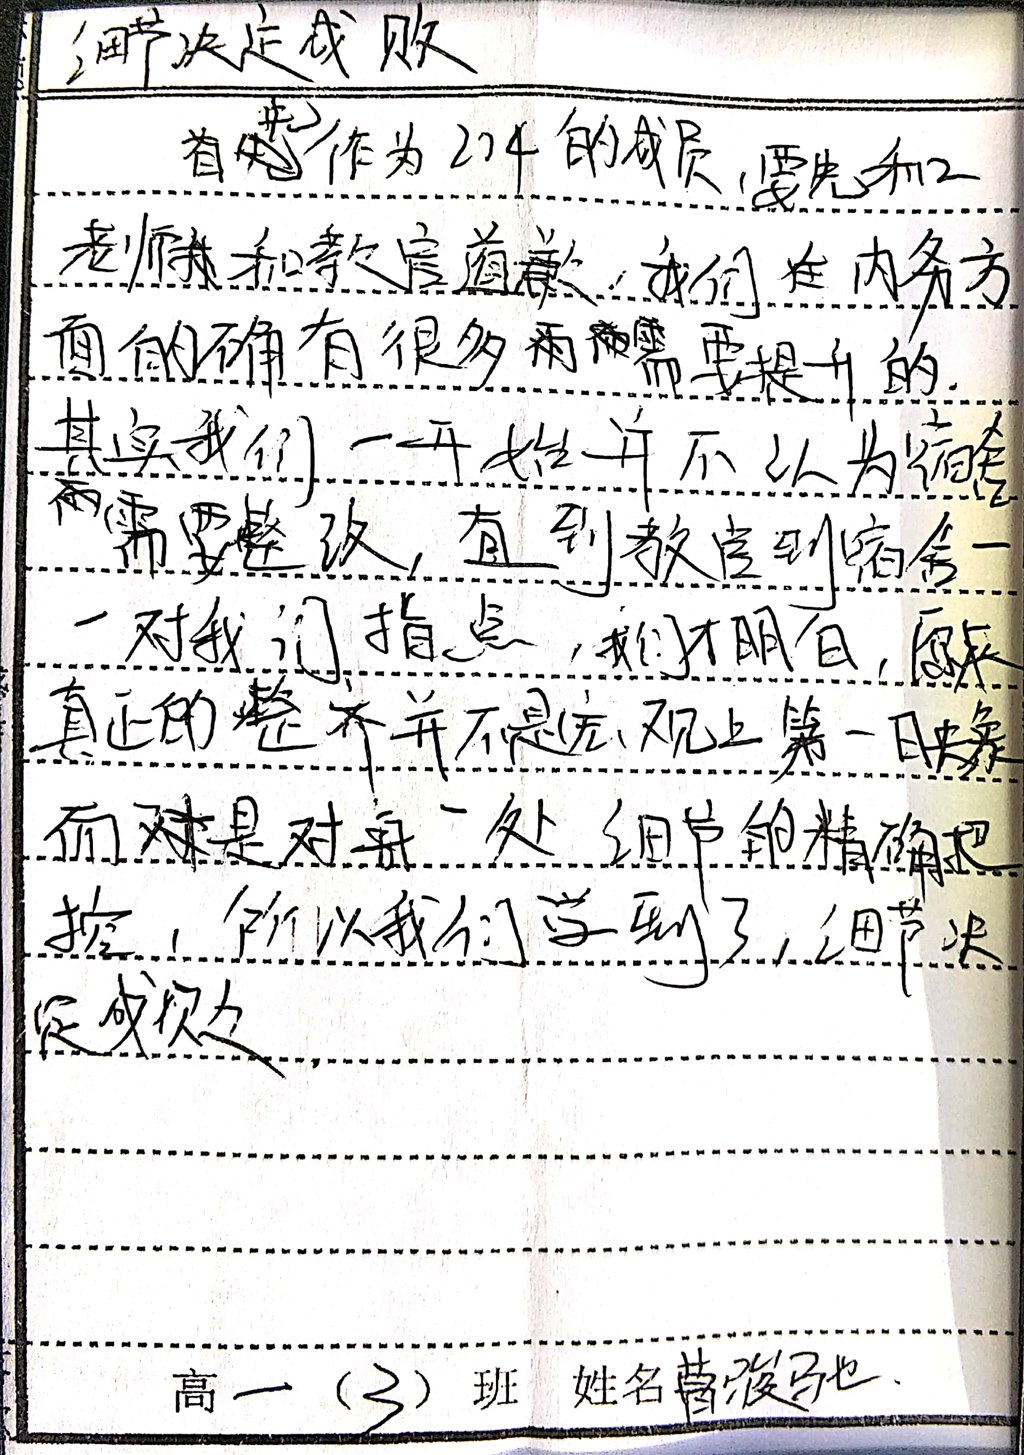 细节决定成败
首先作为204的成员,要先和
老师和教官道歉,我们在内务方
面的确有很多需要提升的.
其实我们一开始并不认为宿舍
需要整改,直到教官到宿舍一
一对我们指点,我们才明白,原来
真正的整齐并不是宏观上第一映象
而是对每一处细节的精确把
控,所以我们学到了,细节决
定成败.
高一(3)班 姓名曹骏驰.